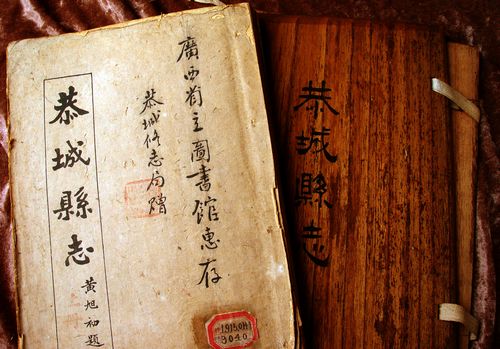 廣西省立圖書館惠存
恭城修志局贈
恭城縣志
黃旭初題
1915.0H1
3040
恭城縣志